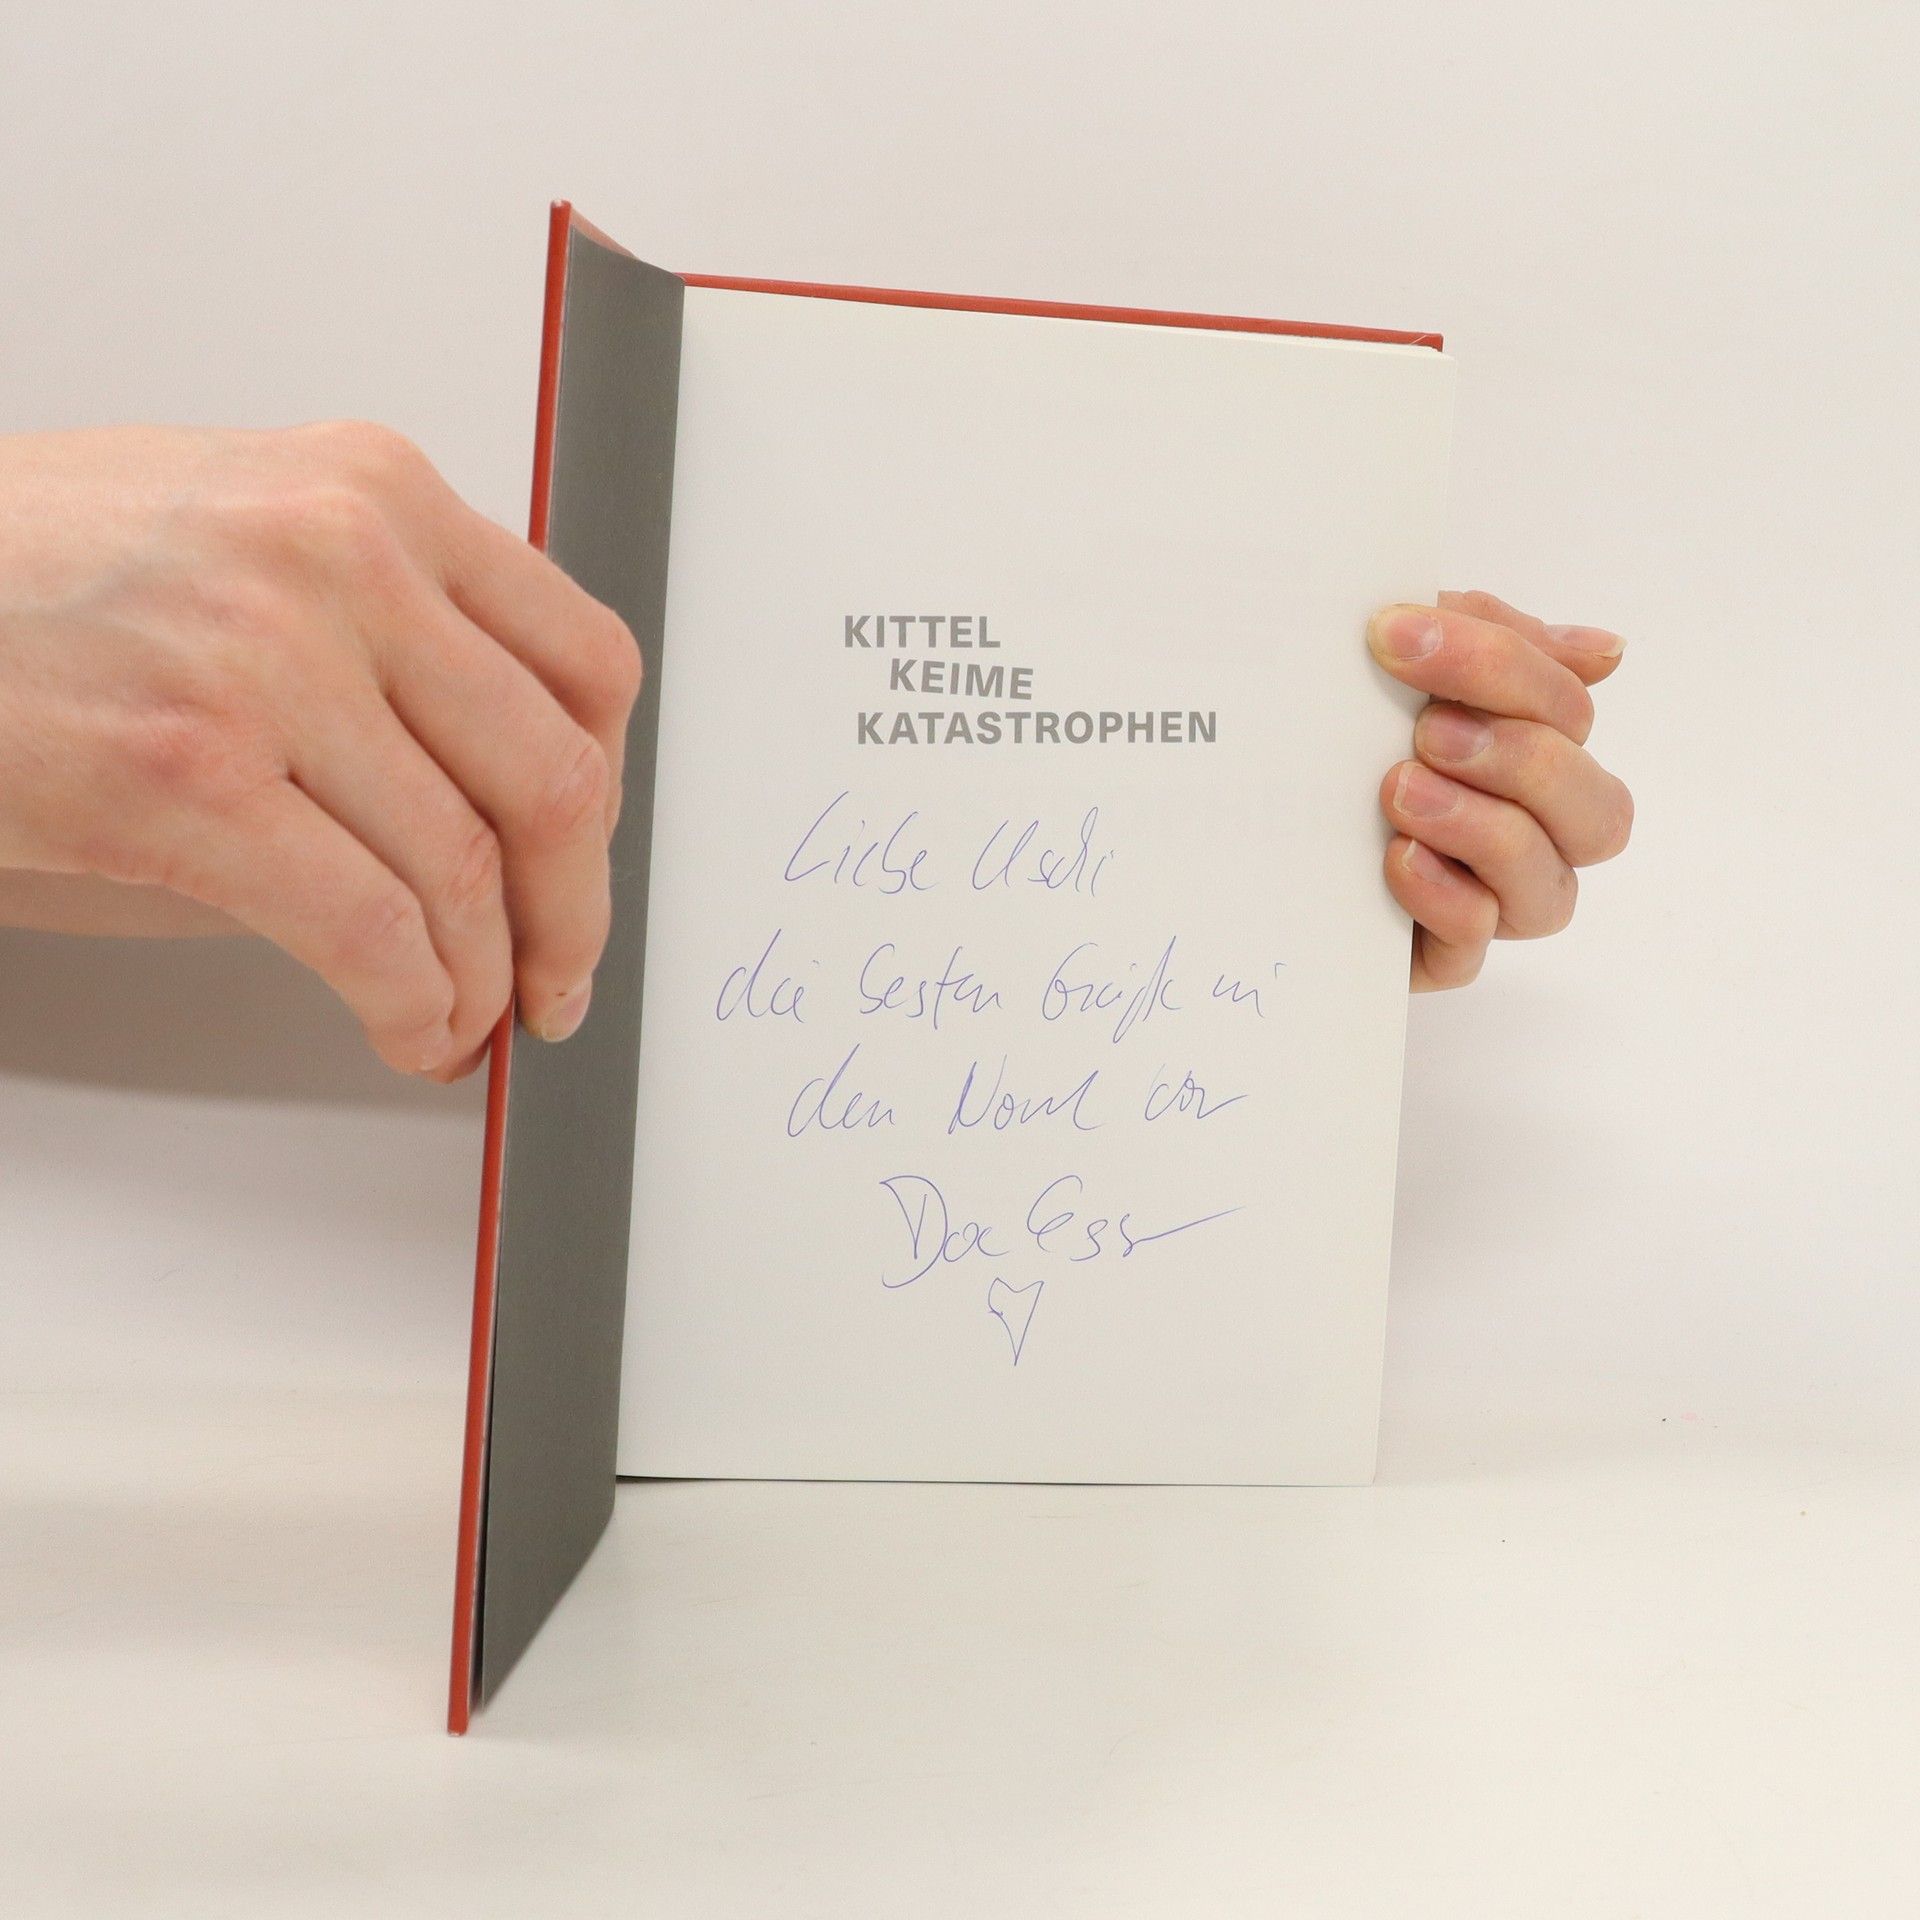 KITTEL
KEIME
KATASTROPHEN
Liebe Uschi
die besten Grüße in
den Nord von
Doc Esser